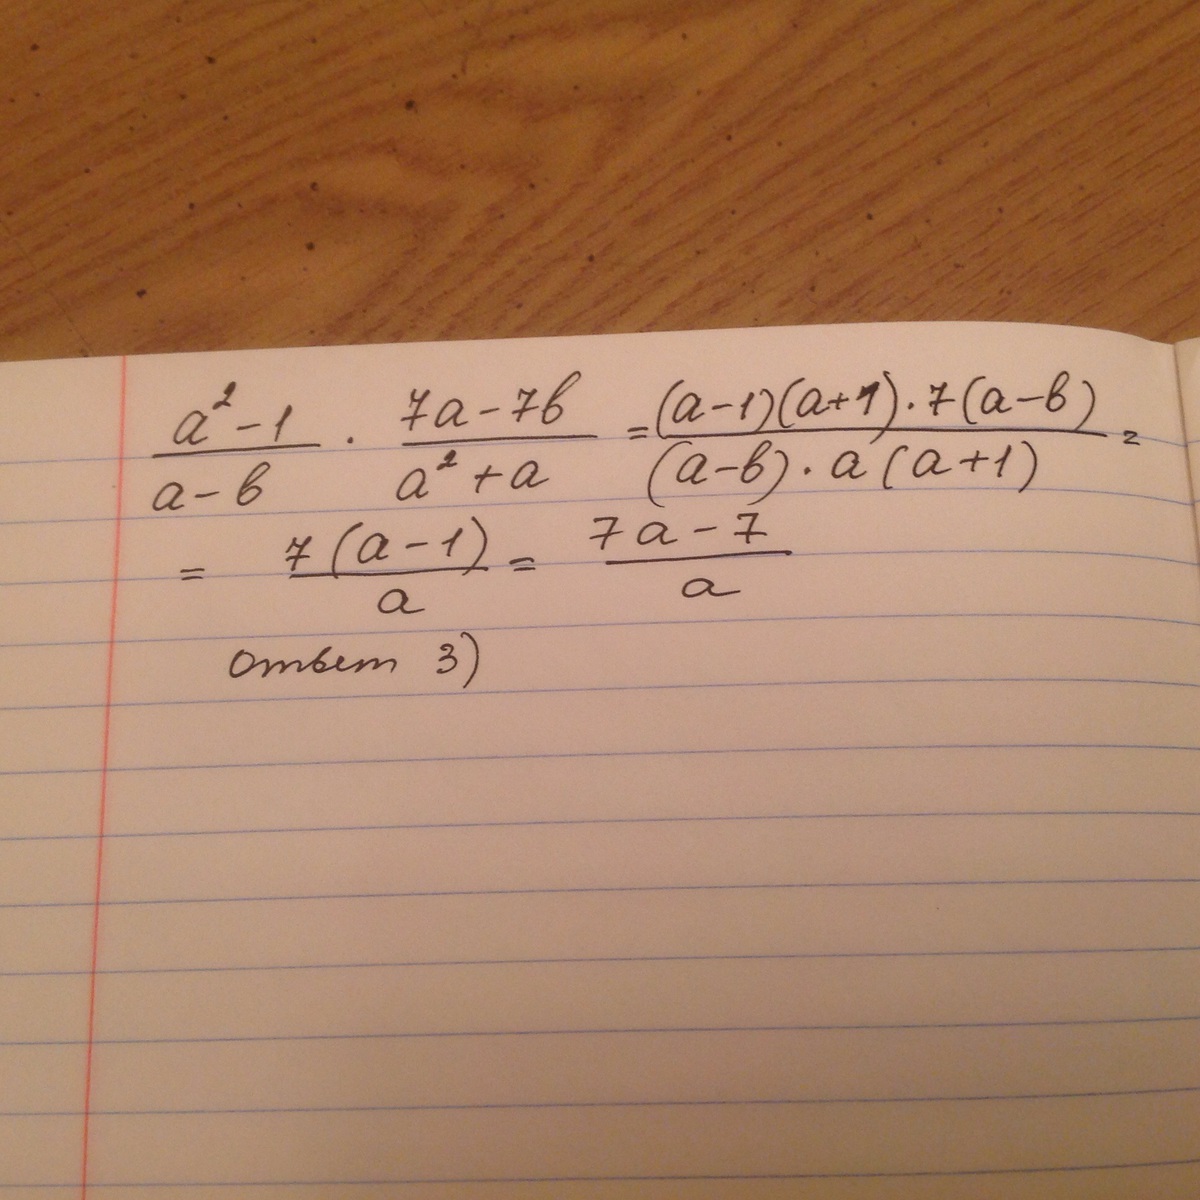 a² - 1 / a - b · 7a - 7b / a² + a = (a-1)(a+1) · 7(a-b) / (a-b) · a(a+1) =
= 7(a-1) / a = 7a - 7 / a
ответ 3)